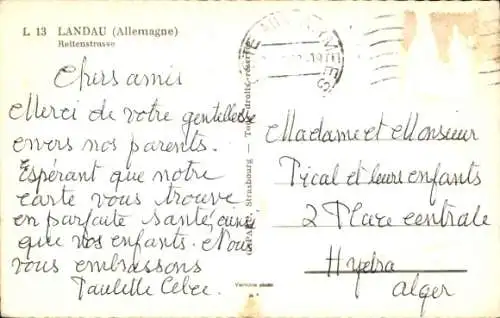 L 13 LANDAU (Allemagne)
Reitenstrasse
Chers amis
Merci de votre gentillesse
envers nos parents.
Espérant que notre
carte vous trouve
en parfaite santé, ainsi
que vos enfants. Nous
vous embrassons
Paulette
Strasbourg — Tous droits réservés
Véritable photo
Madame et Monsieur
Pical et leurs enfants
2 Place centrale
Hydra
Alger